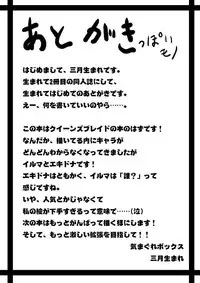 あとがきっぽいモノ
はじめまして、三月生まれです。
生まれて2冊目の同人誌にして、
生まれてはじめてのあとがきです。
えー、何を書いていいのやら……。
この本はクイーンズブレイドの本のはずです！
なんだか、描いてる内にキャラが
どんどんわからなくなってきましたが
イルマとエキドナです！
エキドナはともかく、イルマは「誰？」って
感じですね。
いや、人気とかじゃなくて
私の絵が下手すぎるって意味で……(泣)
次の本はもっとがんばって描く様にします！
そして、もっと激しい拡張を目指して！！
気まぐれボックス
三月生まれ